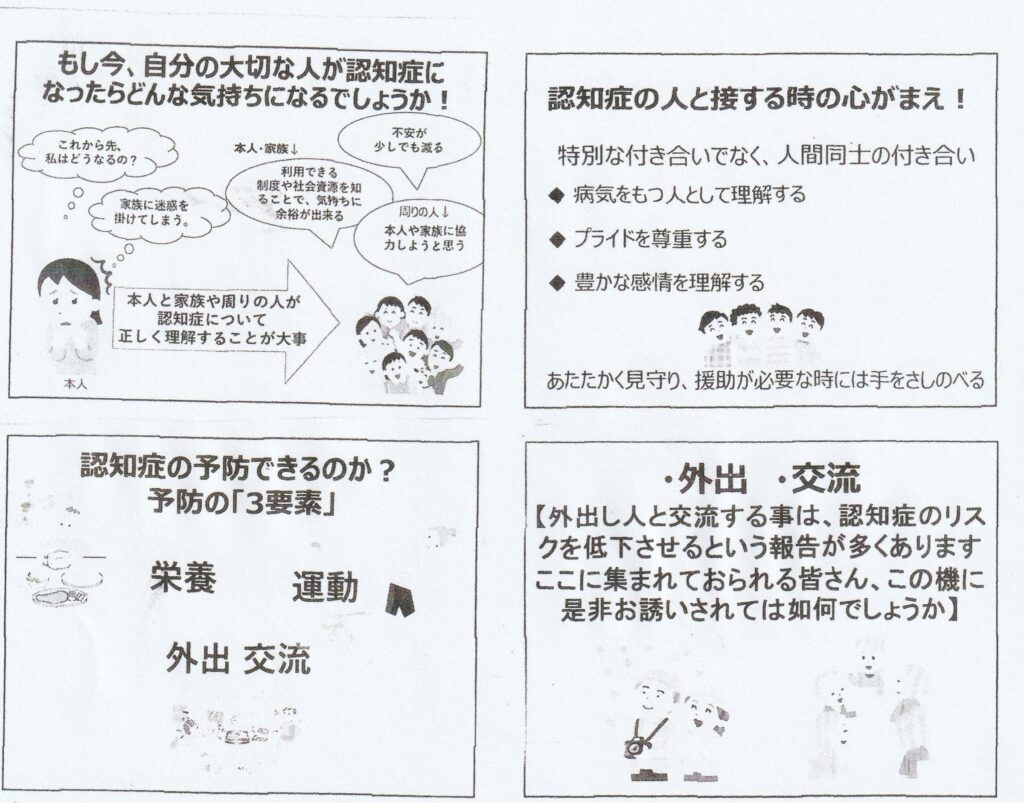 もし今、自分の大切な人が認知症に
なったらどんな気持ちになるでしょうか！
これから先、
私はどうなるの？
家族に迷惑を
掛けてしまう。
本人・家族↓
利用できる
制度や社会資源を知
ることで、気持ちに
余裕が出来る
不安が
少しでも減る
周りの人↓
本人や家族に協
力しようと思う
本人と家族や周りの人が
認知症について
正しく理解することが大事
本人
認知症の人と接する時の心がまえ！
特別な付き合いでなく、人間同士の付き合い
◆ 病気をもつ人として理解する
◆ プライドを尊重する
◆ 豊かな感情を理解する
あたたかく見守り、援助が必要な時には手をさしのべる
認知症の予防できるのか？
予防の「3要素」
栄養
運動
外出 交流
・外出 ・交流
【外出し人と交流する事は、認知症のリス
クを低下させるという報告が多くあります
ここに集まれておられる皆さん、この機に
是非お誘いされては如何でしょうか】